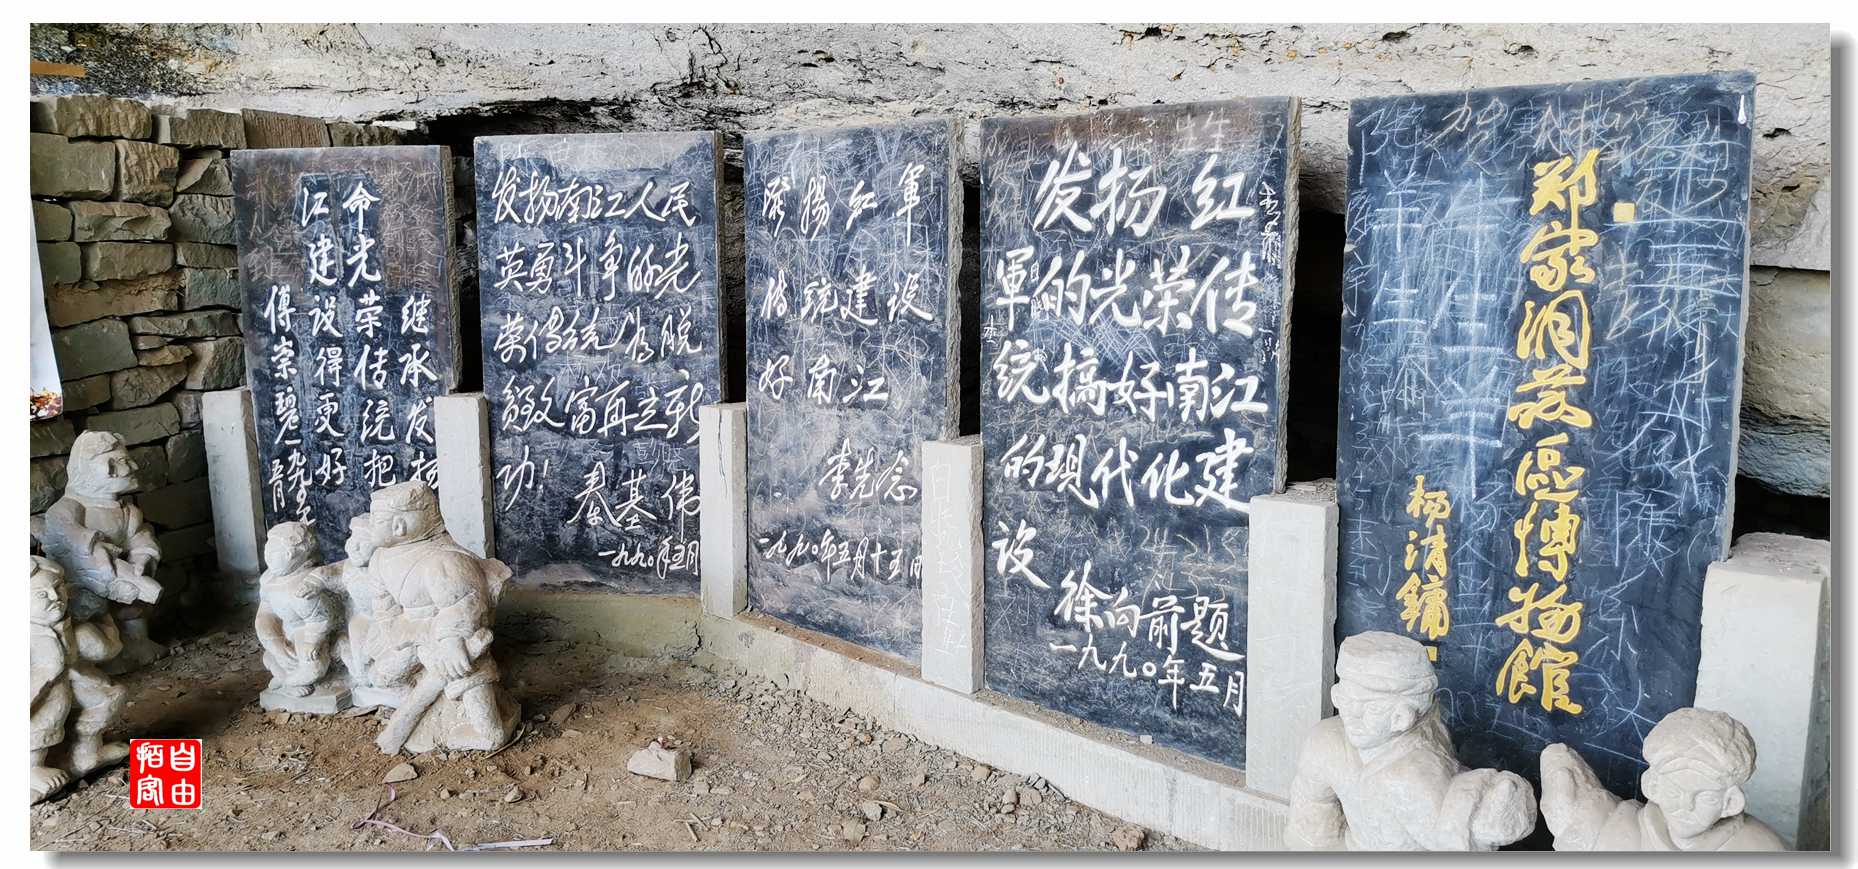 继承发扬
命光荣传统把
江建设得更好
傅崇碧一九九五年
五月
发扬南江人民
英勇斗争的光
荣传统为脱
贫致富再立新
功！
秦基伟
一九九〇年五月
發揚红軍
传统建设
好南江
李先念
一九九〇年五月十五日
发扬红
軍的光荣传
统搞好南江
的现代化建
设
徐向前题
一九九〇年五月
郑家洞苏區博物館
杨清鏞
自由
陌客